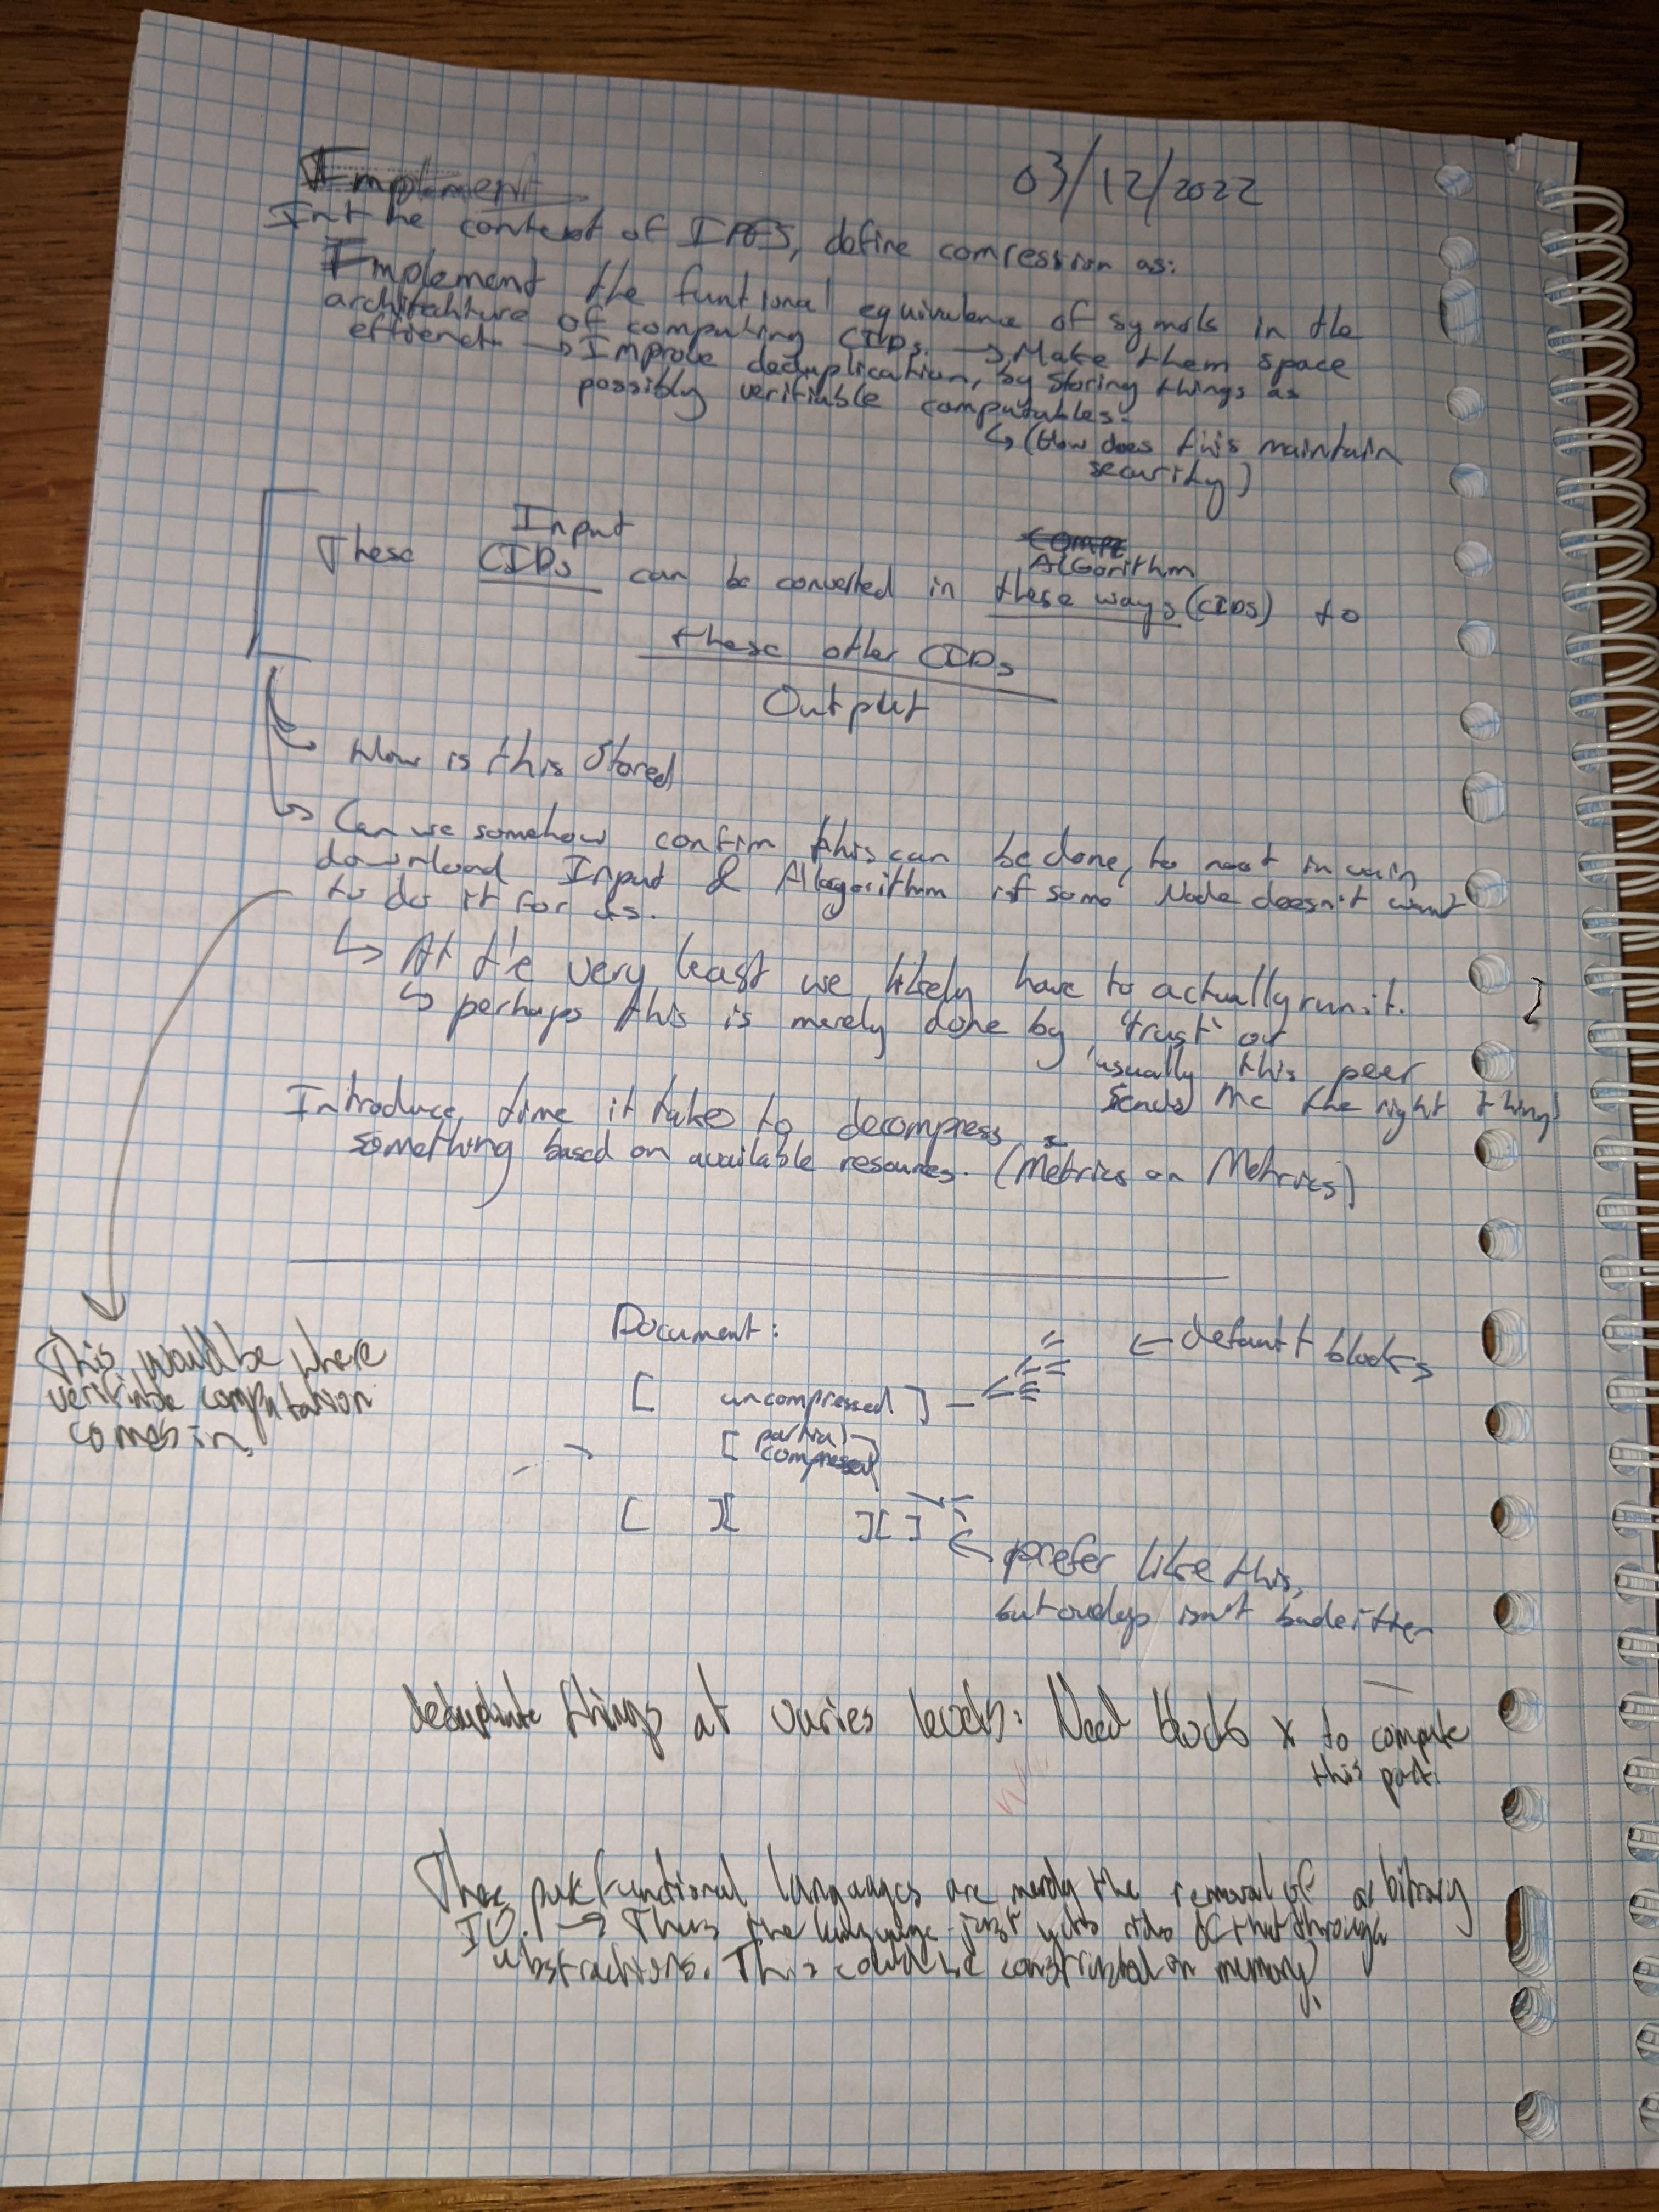 03/12/2022
Implement
Int he context of IPFS, define comression as:
Implement the funtional equivalence of symols in the
architechture of computing CIDs. → Make them space
effienct → Improve deduplication, by storing things as
possibly verifiable computables.
↳ (How does this maintain
security)
Input
COMPR
Algorithm
These CIDs can be converted in these ways (CIDs) to
these other CIDs
Output
How is this stored
Can we somehow confim this can be done, to noot in vain
download Input & Alogorithm if some Node doesn't want
to do it for us.
↳ At the very least we likely have to actually run it.
↳ perhaps this is merely done by 'trust' or
'usually this peer
sends me the right thing'
Introduce time it takes to decompress
something based on available resources. (Metrics on Metrics)
This would be where
verifiable computation
comes in.
Document:
← default blocks
[ uncompressed ]
[ partial compressed ]
[ ][ ][ ]
prefer like this,
but overlap isn't bad either
deduplicate things at varies levels: Need blocks x to compute
this part.
These pure functional languages are merely the removal of arbitrary
IO. → Thus the language just gets rids of that through
abstractions. This could be constructed in memory